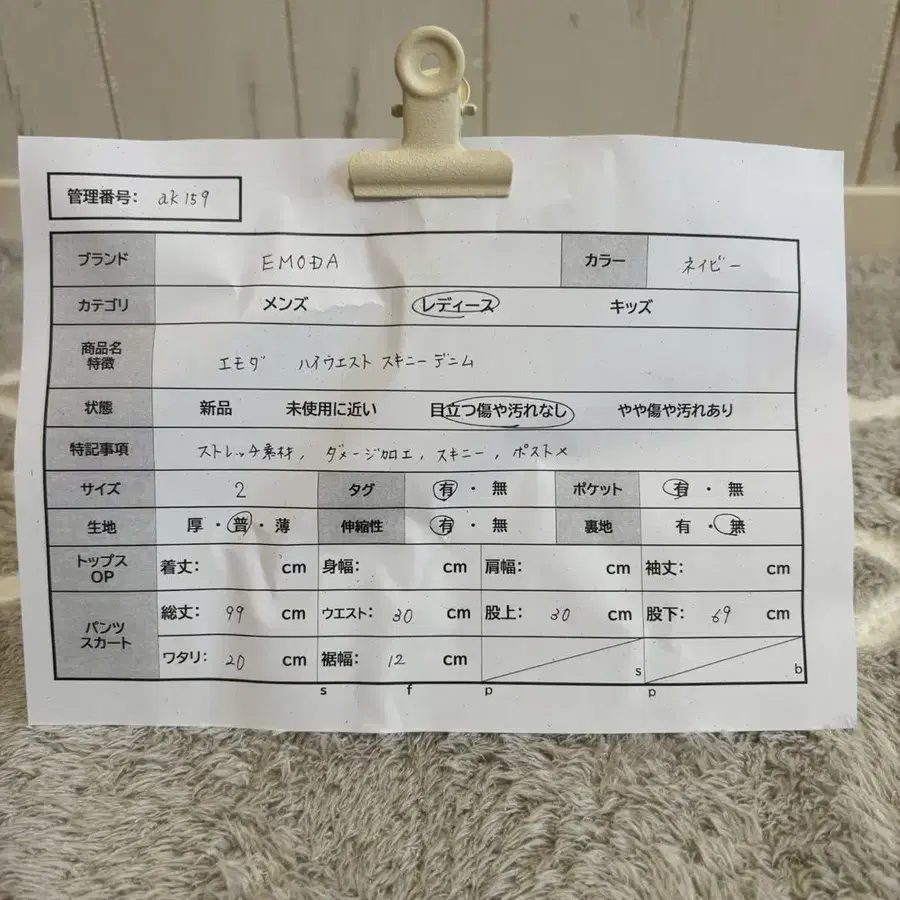 管理番号: ak159
ブランド EMODA カラー ネイビー
カテゴリ メンズ レディース キッズ
商品名 特徴 エモダ ハイウエスト スキニー デニム
状態 新品 未使用に近い 目立つ傷や汚れなし やや傷や汚れあり
特記事項 ストレッチ素材, ダメージ加工, スキニー, ポストメ
サイズ 2 タグ 有・無 ポケット 有・無
生地 厚・普・薄 伸縮性 有・無 裏地 有・無
トップス OP 着丈: cm 身幅: cm 肩幅: cm 袖丈: cm
パンツ スカート 総丈: 99 cm ウエスト: 30 cm 股上: 30 cm 股下: 69 cm
ワタリ: 20 cm 裾幅: 12 cm s b
s f p p